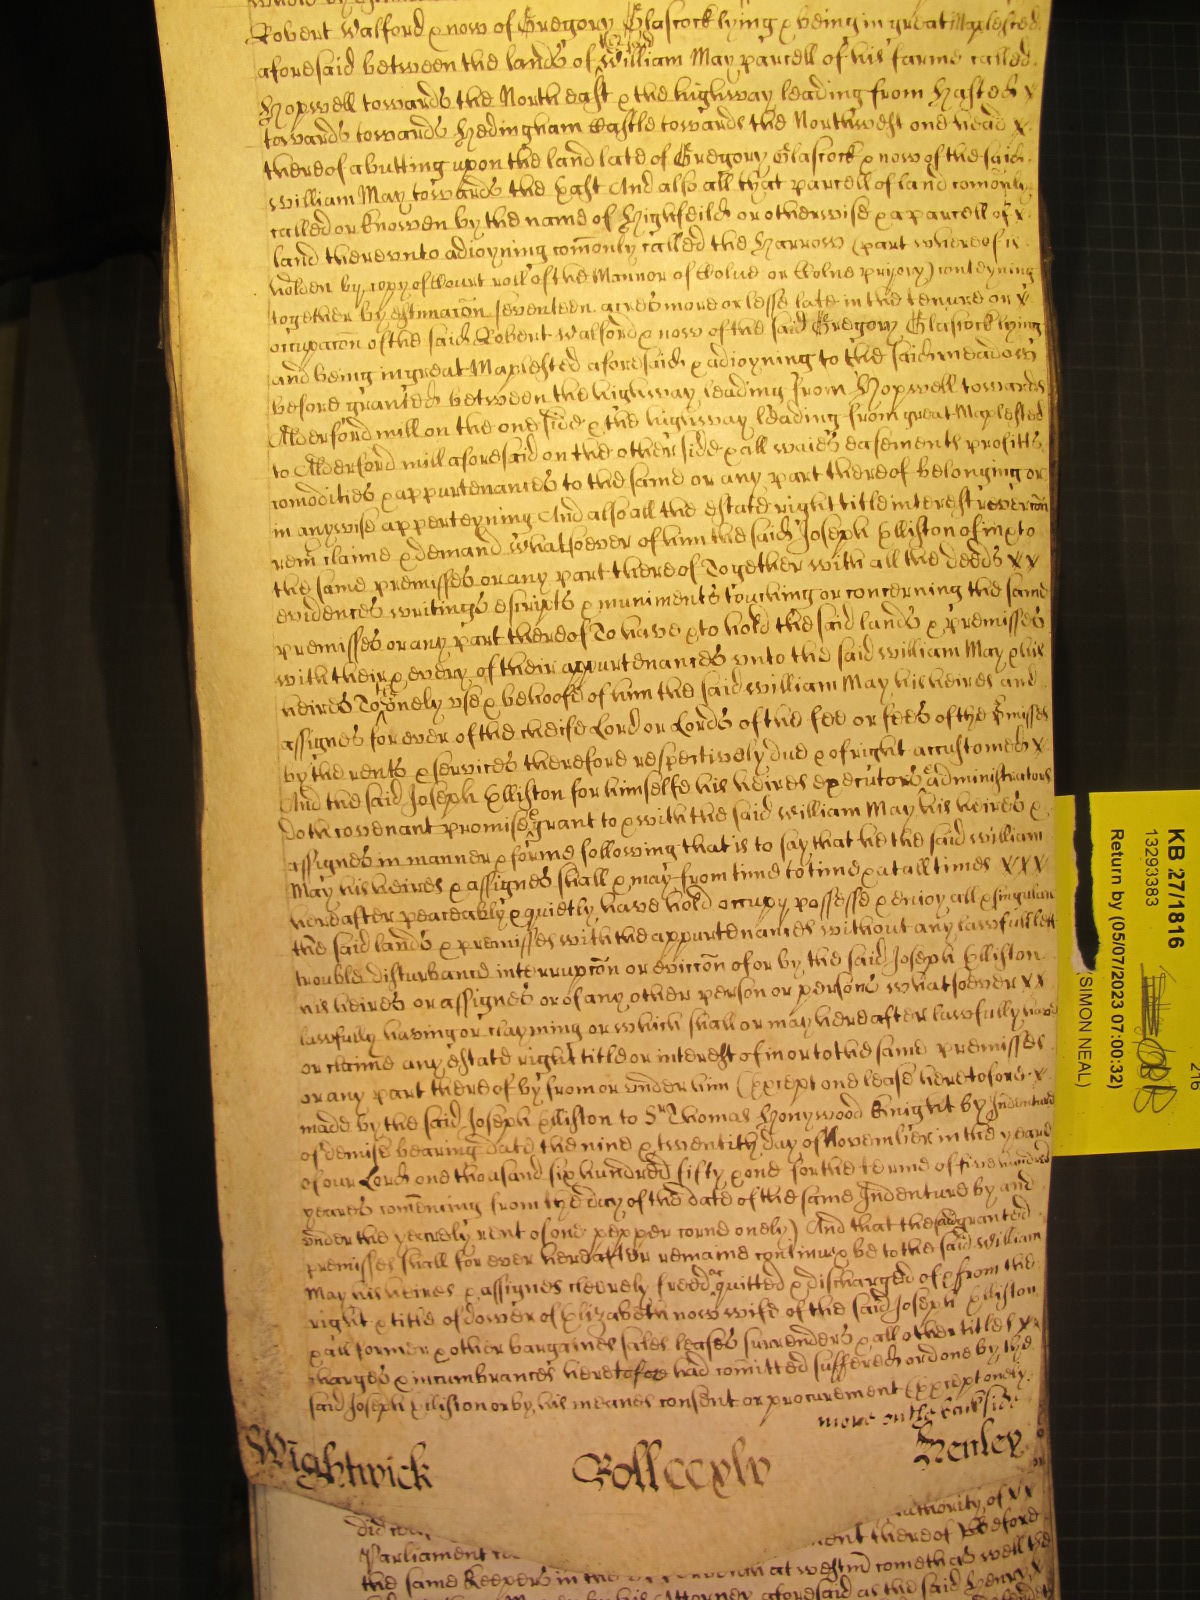 Robert Walford & now of Gregory Glascock lying & being in great Maplested
aforesaid between the lands of William May parcell of his farme called
Hopwell towards the North east & the highway leading from Hasted x
towards towards Hedingham Castle towards the Northwest one head x
thereof abutting upon the land late of Gregory Glascock & now of the said
William May towards the East And also all that parcell of land comonly
called or knowen by the name of Highfeild or otherwise & a parcell of x
land therevnto adioyning comonly called the Harrow (part whereof is
holden by copy of Court roll of the Mannor of Colne or Colne priory) conteyning
together by estimacon seventeen acres more or lesse late in the tenure or x
occupacon of the said Robert Walford & now of the said Gregory Glascock lying
and being in great Maplested aforesaid & adioyning to the said meadow
before granted between the highway leading from Hopwell towards
Alderford mill on the one side & the highway leading from great Maplested
to Alderford mill aforesaid on the other side & all waies easements profitts
comodities & appurtenances to the same or any part thereof belonging or
in anywise apperteyning And also all the estate right title interest revercon
rem claime & demand whatsoever of him the said Joseph Elliston of in & to
the same premisses or any part thereof Together with all the deeds x x
evidences writings escripts & muniments touching or concerning the same
premisses or any part thereof To have & to hold the said lands & premisses
with their & every of their appurtenances vnto the said William May & his
heires To the onely vse & behoofe of him the said William May his heires and
assignes for ever of the cheife Lord or Lords of the fee or fees of the pmisses
by the rents & services therefore respectively due & of right accustomed x
And the said Joseph Elliston for himselfe his heires executors & administrators
doth covenant promise & grant to & with the said William May his heires &
assignes in manner & forme following that is to say that he the said William
May his heires & assignes shall & may from time to time & at all times x x x
hereafter peaceably & quietly have hold occupy possesse & enioy all & singular
the said lands & premisses with the appurtenances without any lawfull lett
trouble disturbance interrupcon or eviccon of or by the said Joseph Elliston
his heires or assignes or of any other person or persons whatsoever x x
lawfully having or clayming or which shall or may hereafter lawfully have
or claime any estate right title or interest of in or to the same premisses
or any part thereof by from or vnder him (Except one lease heretofore x
made by the said Joseph Elliston to Sr Thomas Honywood Knight by Indenture
of demise bearing date the nine & twentith day of November in the yeare
of our Lord one thousand six hundred fifty & one for the terme of five hundred
yeares comencing from the day of the date of the same Indenture by and
vnder the yearely rent of one pepper corne onely) And that the said granted
premisses shall for ever hereafter remaine continue & be to the said William
May his heires & assignes cleerely freed acquitted & discharged of & from the
right & title of dower of Elizabeth now wife of the said Joseph Elliston
& all former & other bargaines sales leases surrenders & all other titles x x
charges & incumbrances heretofore had comitted suffered or done by the
said Joseph Elliston or by his meanes consent or procurement (Except onely
more on the backside
Wightwick Roll ccxlv Henley
did authority of x x
Parliament thereof Before
the same Keepers in the at westm cometh as well the
by his Attorney aforesaid as the said Henry x
KB 27/1816
13293383
Return by (05/07/2023 07:00:32)
(SIMON NEAL)
216